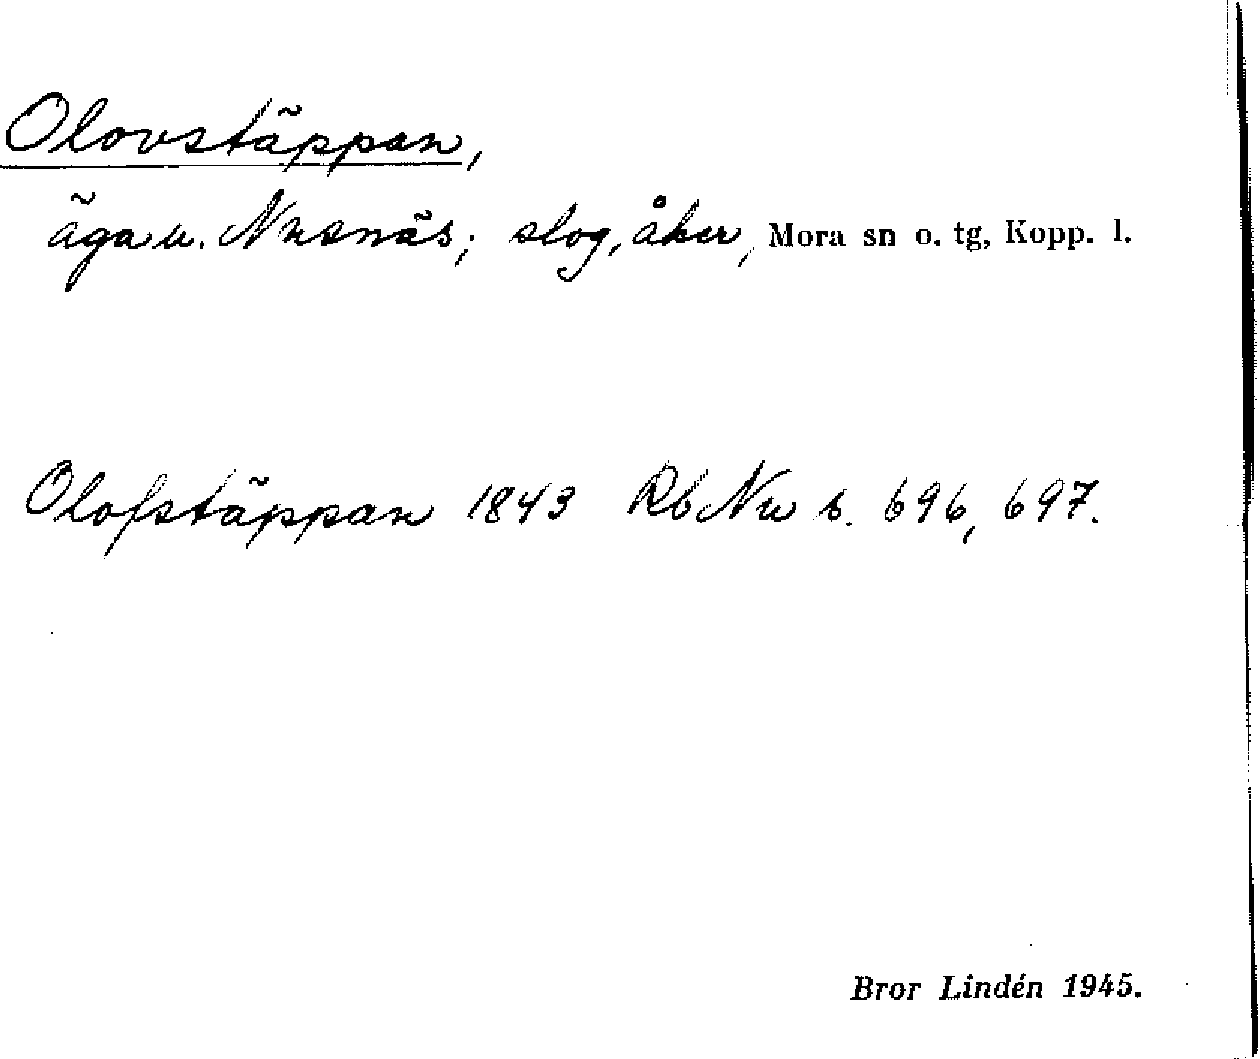 Olovstäppan,
äga u. Nusnäs; slog, åker, Mora sn o. tg, Kopp. l.
Olofstäppan 1843 Rb Nu s. 696, 697.
Bror Lindén 1945.